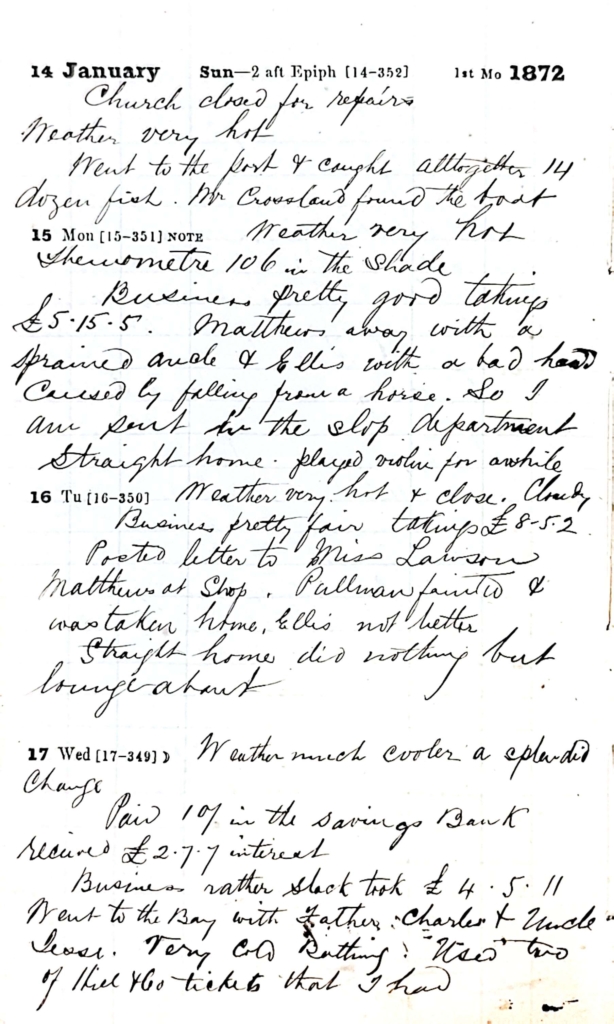 14 January Sun—2 aft Epiph [14-352] 1st Mo 1872
Church closed for repairs
Weather very hot
Went to the port & caught alltogether 14
dozen fish. Mr Crossland found the boat
15 Mon [15-351] NOTE Weather very hot
Thermometre 106 in the shade
Business pretty good takings
£5-15-5. Matthews away with a
sprained ancle & Ellis with a bad hand
caused by falling from a horse. So I
am sent in the slop department
Straight home. played violin for awhile
16 Tu [16-350] Weather very hot & close. Cloudy
Business pretty fair takings £8-5-2
Posted letter to Miss Lawson
Matthews at Shop. Pullman fainted &
was taken home, Ellis not better
Straight home did nothing but
lounge about
17 Wed [17-349] ☽ Weather much cooler a splendid
Change
Paid 10/ in the savings Bank
received £2-7-7 interest
Business rather slack took £4-5-11
Went to the Bay with Father, Charles & Uncle
Jesse. Very Cold Bathing. "Used" two
of & Co tickets that I had